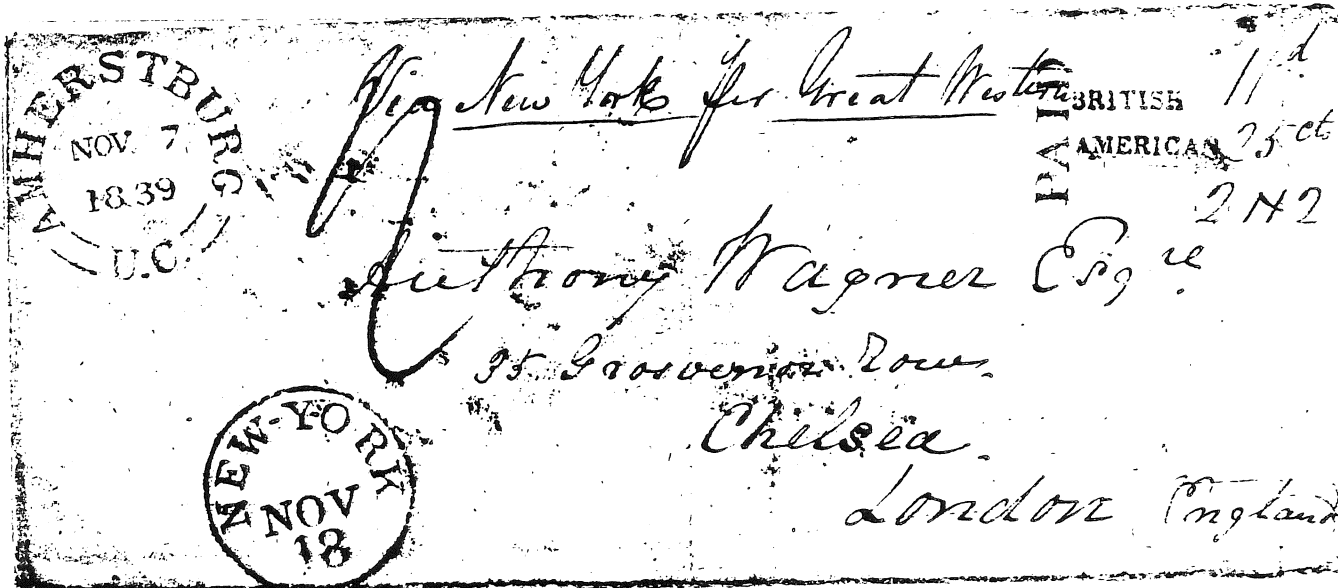 AMHERSTBURG
NOV. 7
1839
U.C.
Via New York per Great Western
PAID
BRITISH
AMERICAN
11d
25 cts
2 N 2
Anthony Wagner Esqre
35 Grosvenor Row
Chelsea.
London England
NEW-YORK
NOV
18